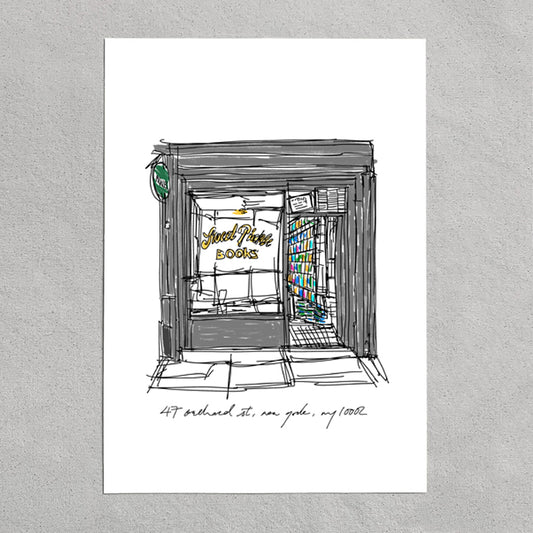 Sweet Pickle
BOOKS
47 orchard st, new york, ny 10002